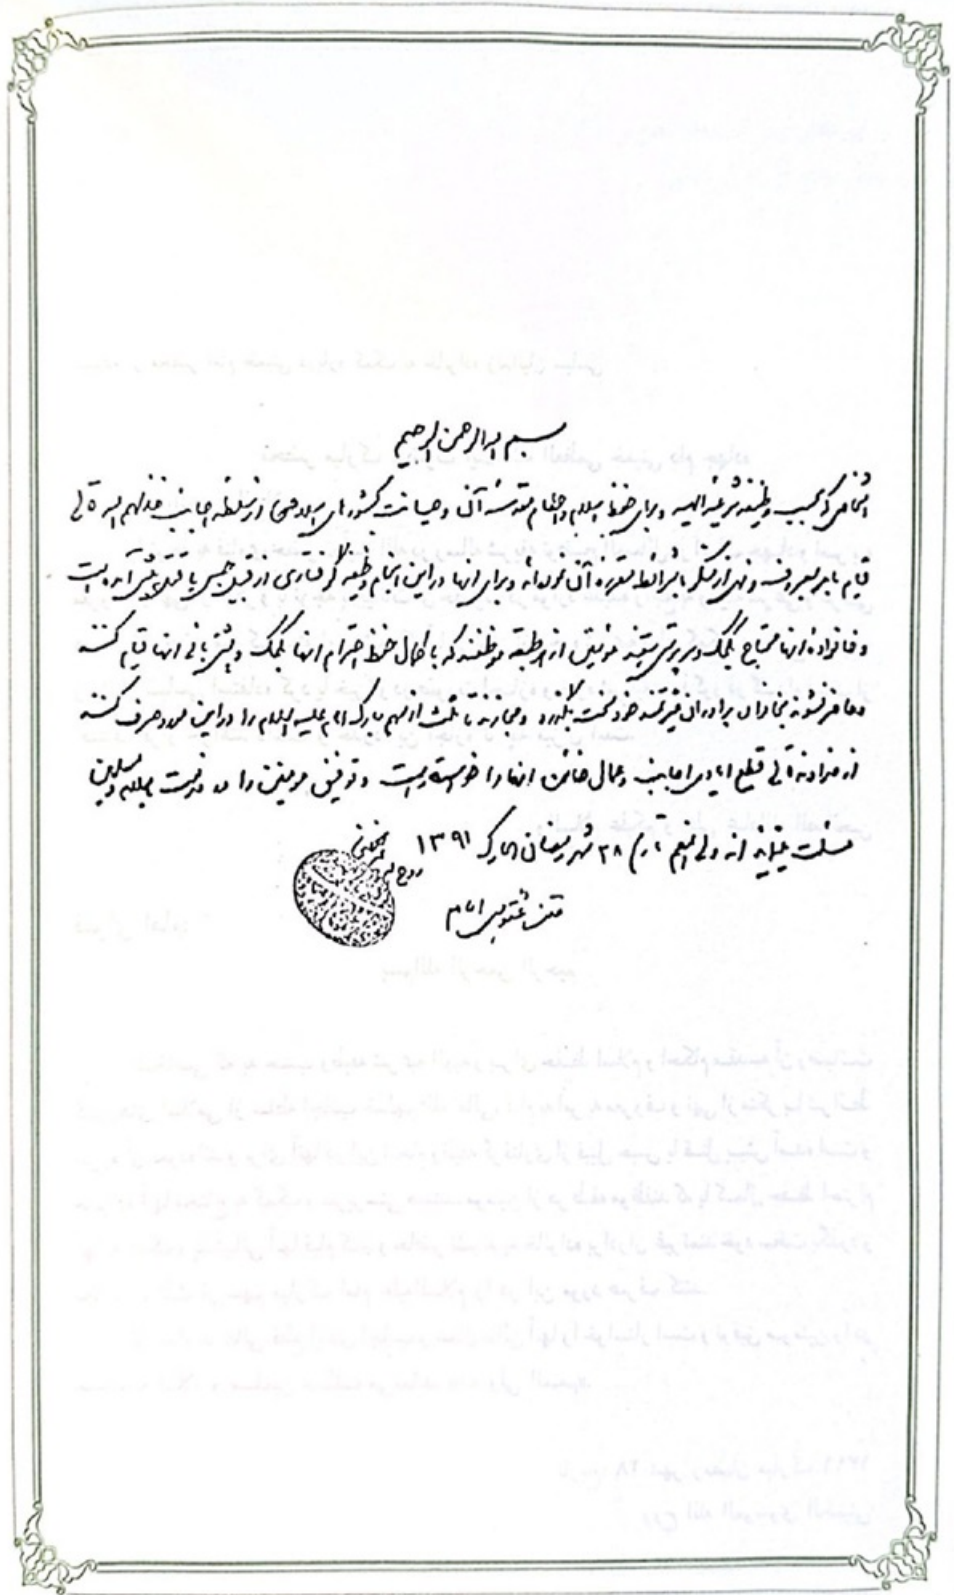 بسم الله الرحمن الرحیم
اشخاصی که بحسب وظیفه شرعیه الهیه و برای حفظ اسلام و احکام مقدسه آن و صیانت کشورهای اسلامی از سلطه اجانب خذلهم الله تعالی
قیام بامر بمعروف و نهی از منکر با شرائط مقرره آن نموده‌اند و برای آنها در این انجام وظیفه گرفتاری از قبیل حبس یا قتل پیش آمده است
و خانواده آنها محتاج بکمک و سرپرستی هستند مؤمنین از هر طبقه موظفند که با کمال حفظ احترام آنها بکمک و پشتیبانی آنها قیام کنند
و حاضر نشوند بخانواده برادران غیرتمند خود سخت بگذرد و مجازند تا ثلث از سهم مبارک امام علیه السلام را در این مورد صرف کنند
از خداوند تعالی قطع ایادی اجانب و عمال خائن آنها را خواستار است و توفیق مؤمنین را در خدمت باسلام و مسلمین
مسئلت مینماید انه ولی النعم بتاریخ ۲۸ شهر رمضان المبارک ۱۳۹۱
روح الله الموسوی الخمینی
متن فتوای امام